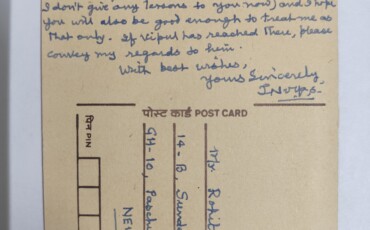 I don't give any lessons to you now) and I hope
you will also be good enough to treat me as
that only. If Vipul has reached there, please
convey my regards to him.
With best wishes,
Yours Sincerely,
पोस्ट कार्ड POST CARD
पिन PIN
Mr Rohit
14-B, Sund
GH-10, Pasch
NE